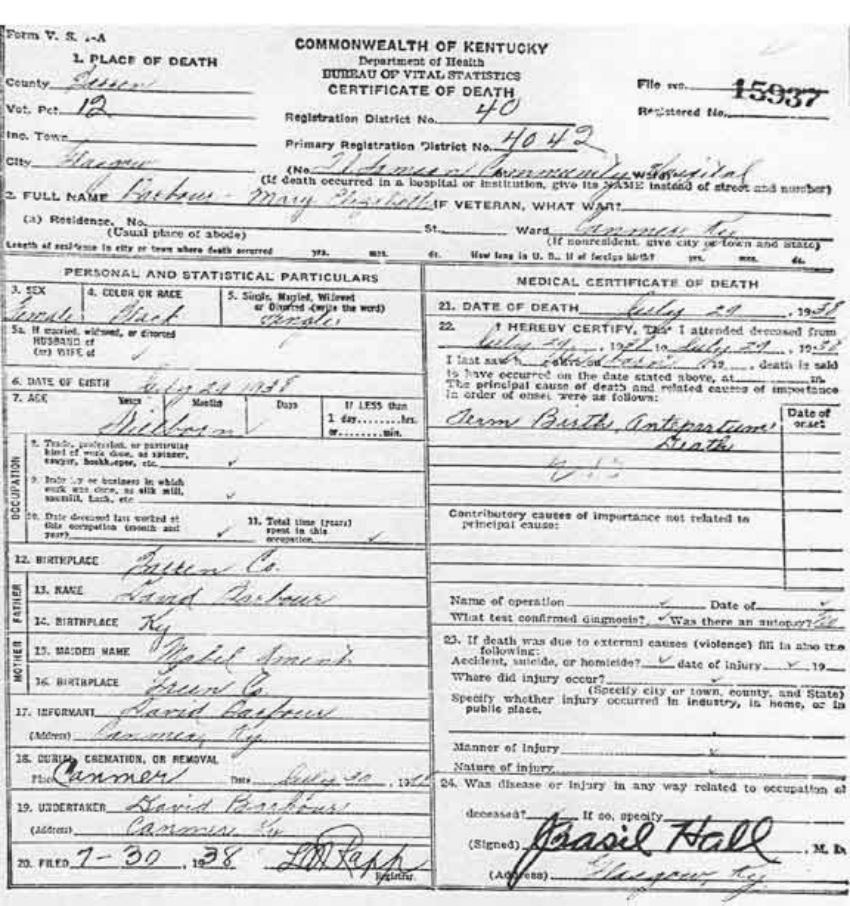 Form V. S. 1-A
COMMONWEALTH OF KENTUCKY
Department of Health
BUREAU OF VITAL STATISTICS
CERTIFICATE OF DEATH
1. PLACE OF DEATH
County
Vot. Pct. 12
Inc. Town
City Glasgow
File no. 15937
Registered No.
Registration District No. 40
Primary Registration District No. 4042
(No. Community Hospital Ward)
(If death occurred in a hospital or institution, give its NAME instead of street and number)
2. FULL NAME Barbour - Mary Elizabeth IF VETERAN, WHAT WAR?
(a) Residence, No. St. Ward Canmer Ky
(Usual place of abode) (If nonresident, give city or town and State)
Length of residence in city or town where death occurred yrs. mos. ds. How long in U. S., if of foreign birth? yrs. mos. ds.
PERSONAL AND STATISTICAL PARTICULARS
3. SEX 4. COLOR OR RACE 5. Single, Married, Widowed
or Divorced (write the word)
Female Black Single
5a. If married, widowed, or divorced
HUSBAND of
(or) WIFE of
6. DATE OF BIRTH July 29 1938
7. AGE Years Months Days If LESS than
1 day, hrs.
or min.
Stillborn
OCCUPATION
8. Trade, profession, or particular
kind of work done, as spinner,
sawyer, bookkeeper, etc. ✓
9. Industry or business in which
work was done, as silk mill,
sawmill, bank, etc ✓
10. Date deceased last worked at
this occupation (month and
year) ✓
11. Total time (years)
spent in this
occupation ✓
12. BIRTHPLACE Co.
FATHER
13. NAME David Barbour
14. BIRTHPLACE Ky
MOTHER
15. MAIDEN NAME Mabel
16. BIRTHPLACE Green Co.
17. INFORMANT David Barbour
(Address) Canmer, Ky
18. BURIAL, CREMATION, OR REMOVAL
Place Canmer Date July 30, 19
19. UNDERTAKER David Barbour
(Address) Canmer Ky
20. FILED 7-30, 1938
Registrar.
MEDICAL CERTIFICATE OF DEATH
21. DATE OF DEATH July 29, 1938
22. I HEREBY CERTIFY, That I attended deceased from
July 29, 1938 to July 29, 1938
I last saw h alive on 19 , death is said
to have occurred on the date stated above, at m.
The principal cause of death and related causes of importance
in order of onset were as follows:
Date of
onset
Term Birth, Antepartum
Death
Contributory causes of importance not related to
principal cause:
Name of operation ✓ Date of ✓
What test confirmed diagnosis? ✓ Was there an autopsy? No
23. If death was due to external causes (violence) fill in also the
following:
Accident, suicide, or homicide? ✓ date of injury ✓ 19
Where did injury occur? ✓
(Specify city or town, county, and State)
Specify whether injury occurred in industry, in home, or in
public place.
Manner of injury ✓
Nature of injury ✓
24. Was disease or injury in any way related to occupation of
deceased? If so, specify
(Signed) Basil Hall, M. D.
(Address) Glasgow, Ky